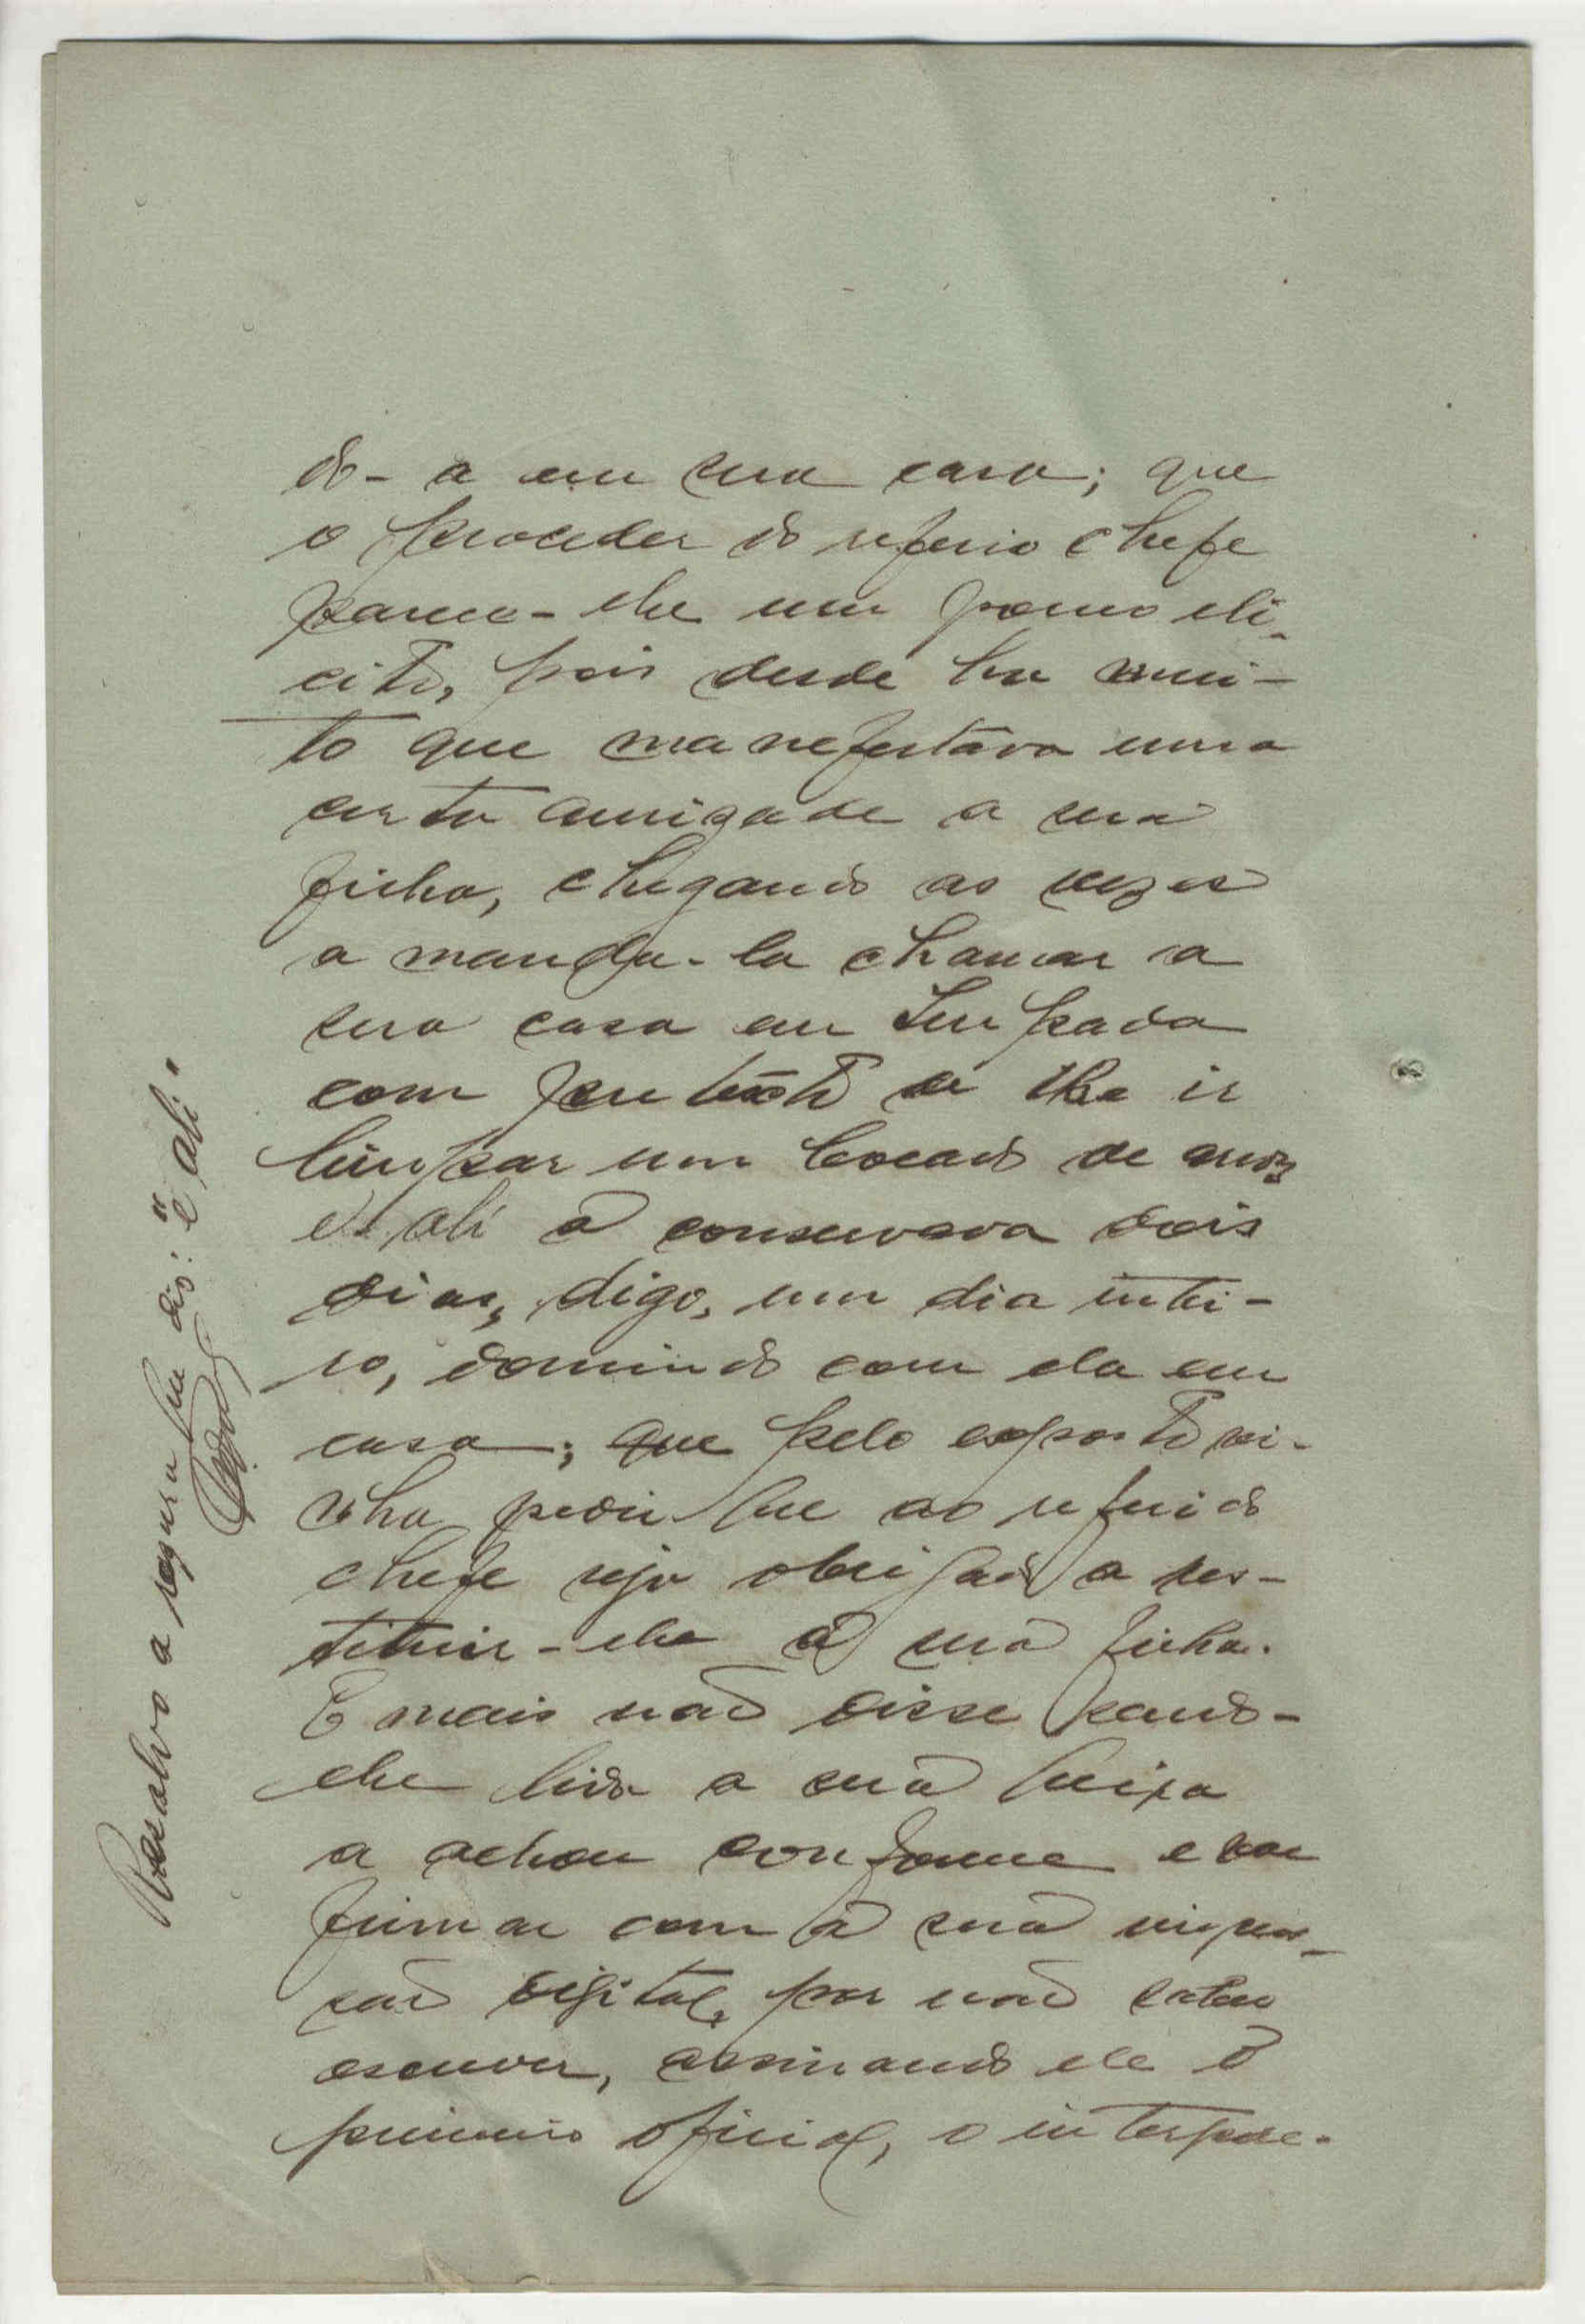 do-a em sua casa; que
o proceder do referio chefe
parece-lhe um pouco eli-
cito, pois desde ha mui-
to que manefestava uma
certa amizade a sua
filha, chegando as vezes
a manda-la chamar a
sua casa em Lumpada
com pretexto de lhe ir
limpar um bocado de arroz
e ali a conservava dois
dias, digo, um dia intei-
ro, dormindo com ela em
casa; que pelo exposto vi-
nha pedir que ao referido
chefe seja obrigado a res-
tituir-lhe a sua filha.
E mais não disse, sendo-
lhe lida a sua queixa
a achou conforme e vai
firmar com a sua impres-
são digital, por não saber
escrever, assinando ele o
primeiro oficial, o interpre-
Resalvo a rasura que diz: "e ali"